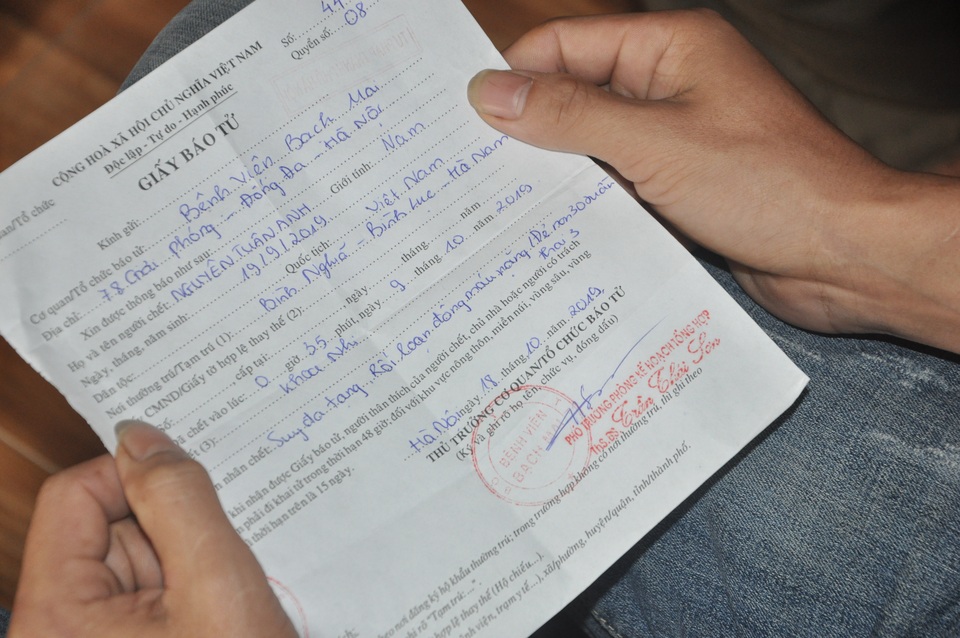 CỘNG HOÀ XÃ HỘI CHỦ NGHĨA VIỆT NAM
Độc lập - Tự do - Hạnh phúc
Số: 44
Quyển số: 08
GIẤY BÁO TỬ
Kính gửi:
Cơ quan/Tổ chức báo tử: Bệnh viện Bạch Mai
Địa chỉ: 78 Giải phóng - Đống Đa - Hà Nội
Xin được thông báo như sau:
Họ và tên người chết: NGUYỄN TUẤN ANH Giới tính: Nam
Ngày, tháng, năm sinh: 19/9/2019
Dân tộc: Quốc tịch: Việt Nam
Nơi thường trú/Tạm trú (1): Bình Nghĩa - Bình Lục - Hà Nam
CMND/Giấy tờ hợp lệ thay thế (2):
Số: cấp tại: ngày tháng năm
chết vào lúc: 0 giờ 35 phút, ngày 9 tháng 10 năm 2019
(3): Khoa Nhi
nhân chết: Suy đa tạng, Rối loạn đông máu nặng / Đẻ non 30 tuần
Thai 3
khi nhận được Giấy báo tử, người thân thích của người chết, chủ nhà hoặc người có trách
phải đi khai tử trong thời hạn 48 giờ; đối với khu vực nông thôn, miền núi, vùng sâu, vùng
thời hạn trên là 15 ngày.
Hà Nội ngày 18 tháng 10 năm 2019
THỦ TRƯỞNG CƠ QUAN/TỔ CHỨC BÁO TỬ
(Ký và ghi rõ họ, tên, chức vụ, đóng dấu)
BỆNH VIỆN
BẠCH MAI
PHÓ TRƯỞNG PHÒNG KẾ HOẠCH TỔNG HỢP
Ths.BS Trần Thái Sơn
nơi đăng ký hộ khẩu thường trú; trong trường hợp không có nơi thường trú, thì ghi theo
ghi rõ "Tạm trú: ..."
hợp lệ thay thế (Hộ chiếu...).
viện, trạm y tế...), xã/phường, huyện/quận, tỉnh/thành phố.